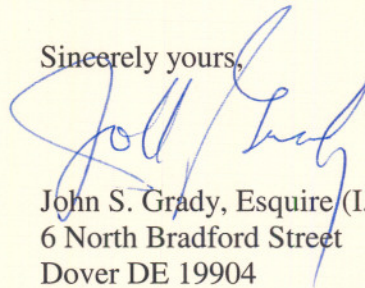 Sincerely yours,
John S. Grady, Esquire (I.
6 North Bradford Street
Dover DE 19904